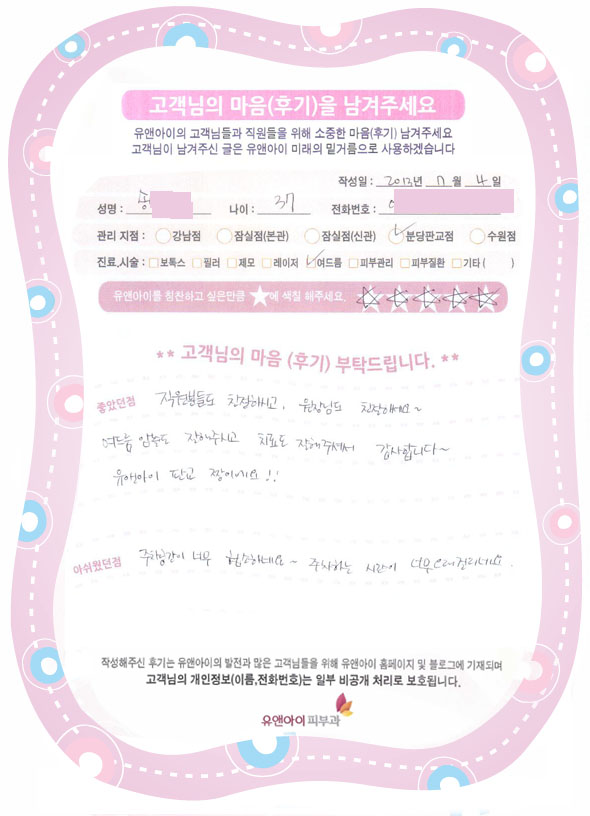 고객님의 마음(후기)을 남겨주세요
유앤아이의 고객님들과 직원들을 위해 소중한 마음(후기) 남겨주세요
고객님이 남겨주신 글은 유앤아이 미래의 밑거름으로 사용하겠습니다
작성일 : 2013년 7월 4일
성명 : 송 나이 : 37 전화번호 : 0
관리 지점 : 강남점 잠실점(본관) 잠실점(신관) 분당판교점 수원점
진료,시술 : 보톡스 필러 제모 레이저 여드름 피부관리 피부질환 기타 ( )
유앤아이를 칭찬하고 싶은만큼 ★에 색칠 해주세요. ★★★★★
** 고객님의 마음 (후기) 부탁드립니다. **
좋았던점 직원분들도 친절하시고, 원장님도 친절해요~
여드름 압출도 잘해주시고 치료도 잘해주셔서 감사합니다~
유앤아이 판교 짱이에요!!
아쉬웠던점 주차공간이 너무 협소하네요~ 주차하는 시간이 너무오래걸리네요.
작성해주신 후기는 유앤아이의 발전과 많은 고객님들을 위해 유앤아이 홈페이지 및 블로그에 기재되며
고객님의 개인정보(이름,전화번호)는 일부 비공개 처리로 보호됩니다.
유앤아이피부과